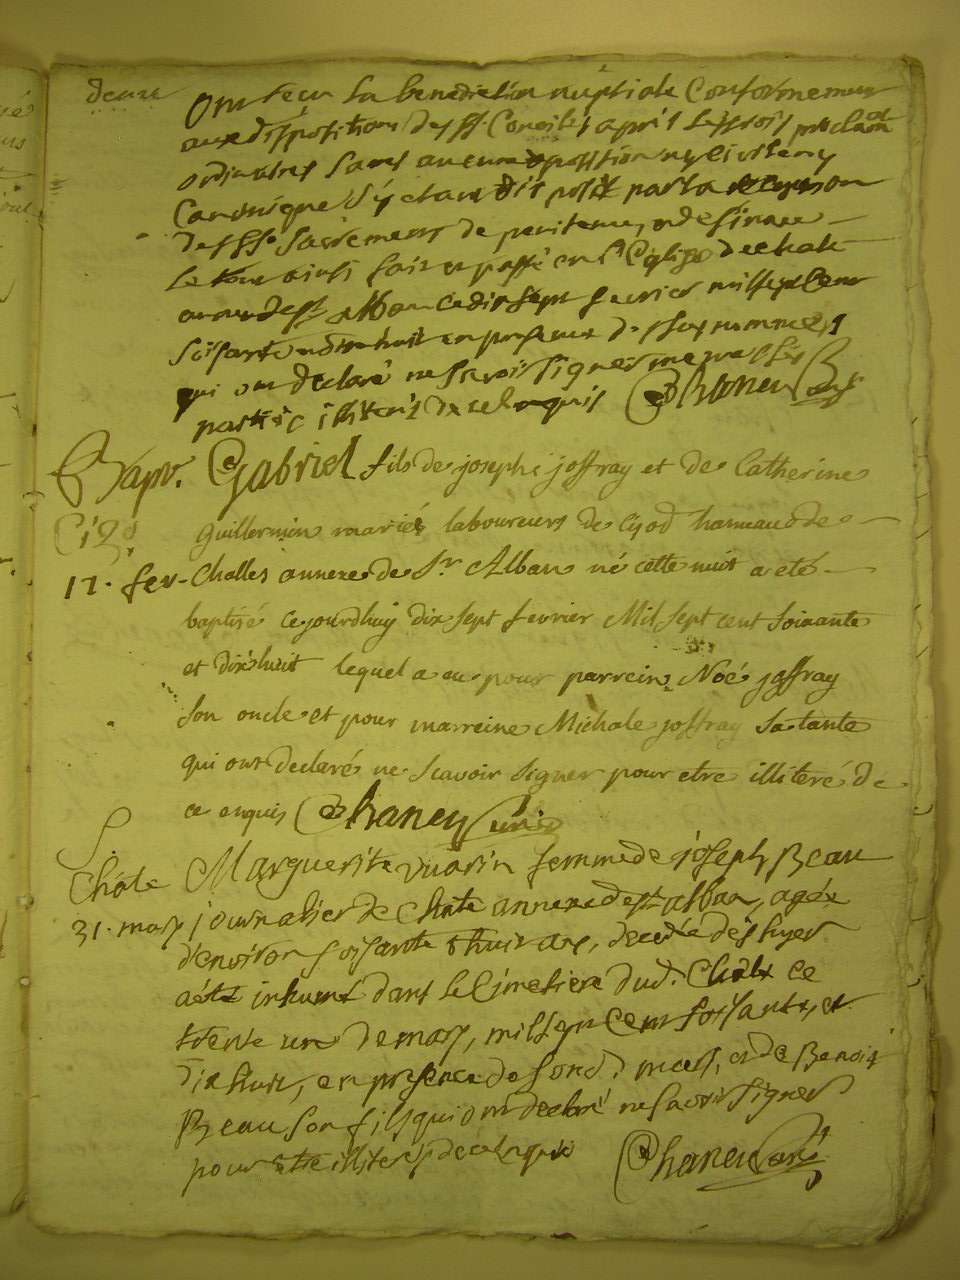 ont recu la benediction nuptiale Conformement
aux dispositions des SS. Conciles après les trois proclaon
ordinaires sans aucune opposition ny civile ny
Canonique s'y etant disposé par la reception
des SSts. Sacrements de penitence, et de
le tout ainsi fait et passé en l'Eglise de chale
annexe de st alban ce dix sept fevrier mil sept Cent
soisante et dix huit en presence des
qui ont declaré ne scavoir signer
parties illiterés de ce enquis Chaney curé
Bapt. Gabriel fils de joseph joffray et de Catherine
Cize Guillermin mariés laboureurs de hameaud de
17. fev- Challes annexe de St. Alban né cette nuit a eté
baptisé cejourdhuy dix sept fevrier Mil sept cent soixante
et dixhuit lequel a eu pour parrein Noé joffray
son oncle et pour marreine Michale joffray sa tante
qui ont declaré ne scavoir signer pour etre illiteré de
ce enquis Chaney curé
S.
Châle Marguerite vuarin femme de joseph Beau
31. mars journalier de Chale annexe de st alban, agée
d'environ soisante & huit ans, decedée dès hyer
a été inhumé dans le Cimetiere dud. Châle ce
trente un de mars, mil sept Cent soisante, et
dix huit, en presence de sond. mary, et de Benoit
Beau son fils qui ont declaré ne savoir signer
pour etre illiterés de ce enquis Chaney curé